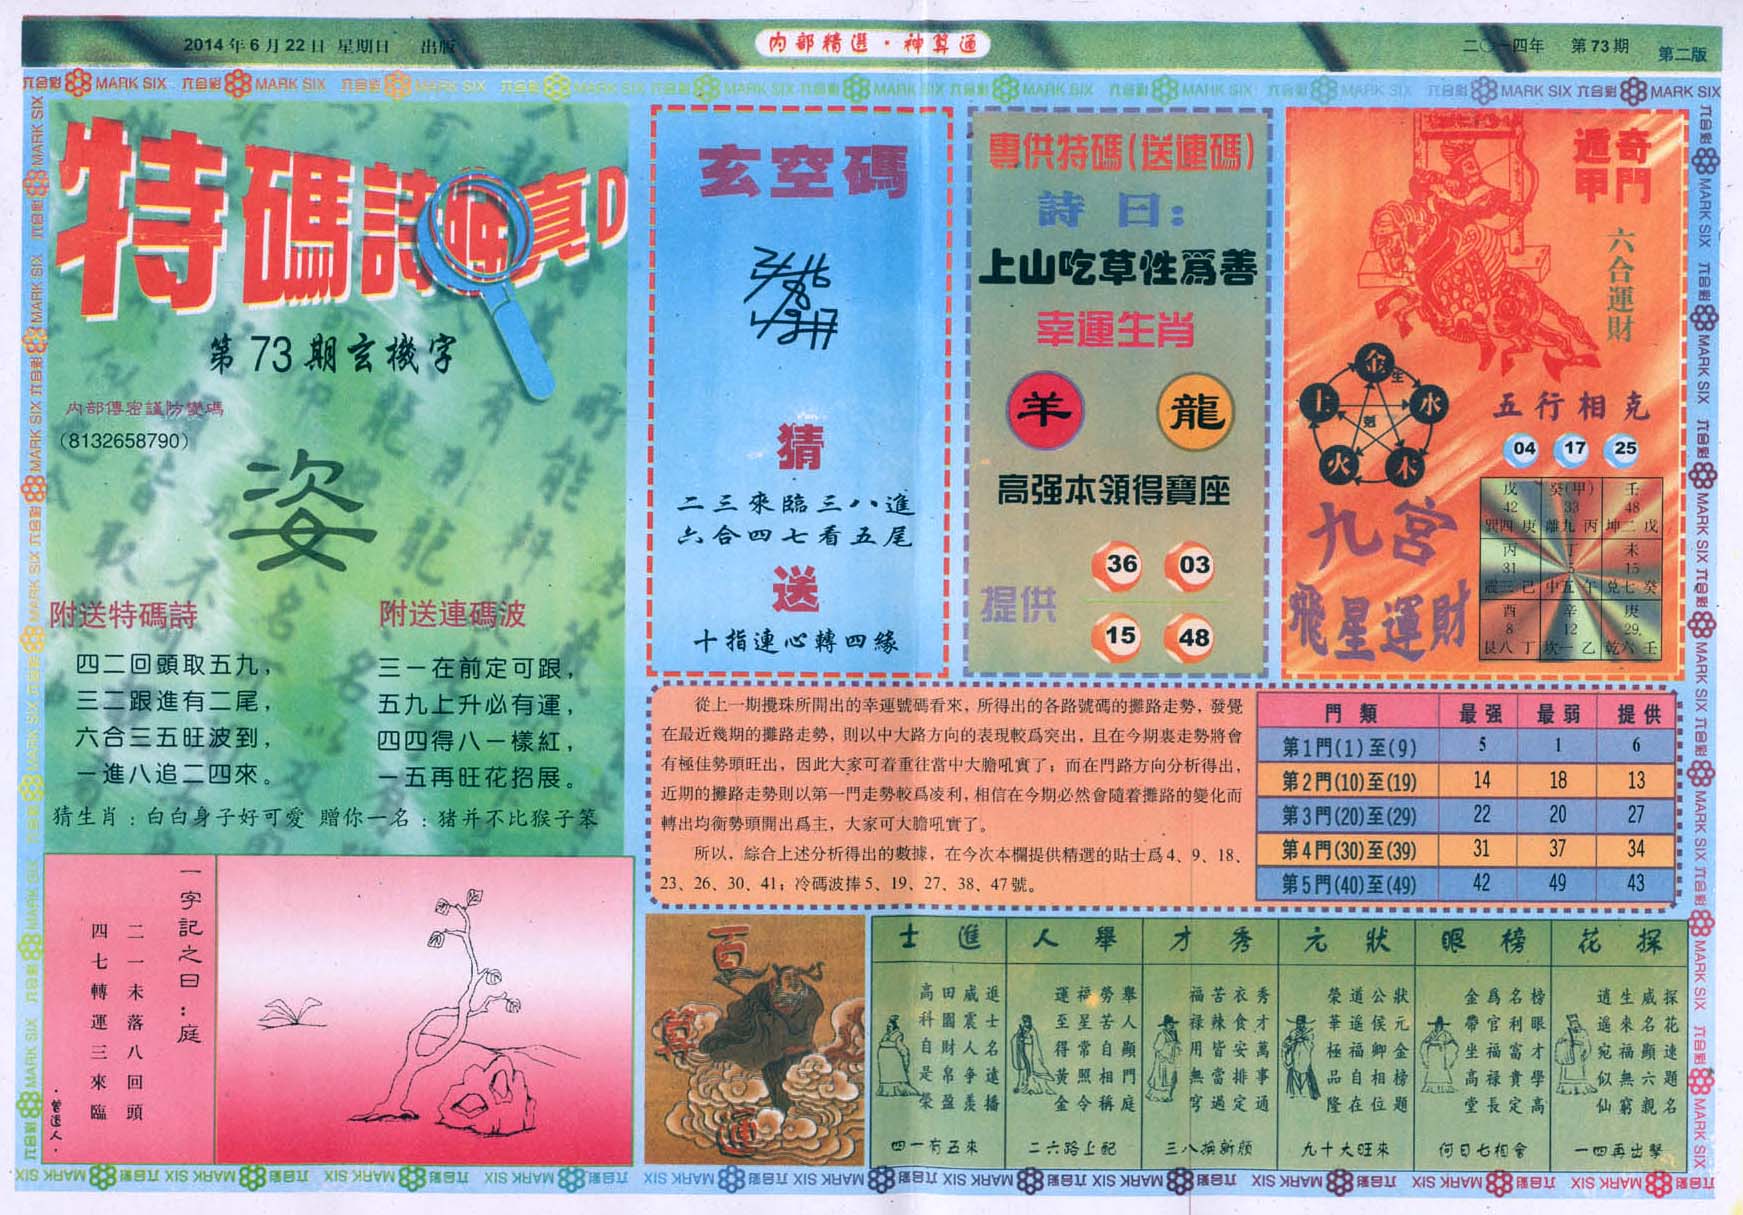 2014年6月22日 星期日 出版
内部精選·神算通
二〇一四年 第73期 第二版
六合彩 MARK SIX
特碼詩
真D
第73期玄機字
内部傳密謹防變碼
(8132658790)
姿
附送特碼詩
四二回頭取五九，
三二跟進有二尾，
六合三五旺波到，
一進八追二四來。
附送連碼波
三一在前定可跟，
五九上升必有運，
四四得八一樣紅，
一五再旺花招展。
猜生肖：白白身子好可愛 贈你一名：猪并不比猴子笨
一字記之曰：庭
二一未落八回頭
四七轉運三來臨
·曾道人·
玄空碼
猜
二三來臨三八進
六合四七看五尾
送
十指連心轉四緣
專供特碼(送連碼)
詩曰：
上山吃草性爲善
幸運生肖
羊 龍
高强本領得寶座
提供
36 03
15 48
奇門遁甲
六合運財
金 生 水 木 火 土 剋
五行相克
04 17 25
九宮
飛星運財
戊 癸(甲) 壬
42 33 48
巽四 庚 離九 丙 坤二 戊
丙 丁 未
31 5 15
震三 己 中五 午 兌七 癸
酉 辛 庚
8 12 29
艮八 丁 坎一 乙 乾六 壬
從上一期攪珠所開出的幸運號碼看來，所得出的各路號碼的攤路走勢，發覺
在最近幾期的攤路走勢，則以中大路方向的表現較爲突出，且在今期裏走勢將會
有極佳勢頭旺出，因此大家可着重往當中大膽吼實了；而在門路方向分析得出，
近期的攤路走勢則以第一門走勢較爲凌利，相信在今期必然會隨着攤路的變化而
轉出均衡勢頭開出爲主，大家可大膽吼實了。
所以，綜合上述分析得出的數據，在今次本欄提供精選的貼士爲4、9、18、
23、26、30、41；冷碼波捧5、19、27、38、47號。
門類 最强 最弱 提供
第1門(1)至(9) 5 1 6
第2門(10)至(19) 14 18 13
第3門(20)至(29) 22 20 27
第4門(30)至(39) 31 37 34
第5門(40)至(49) 42 49 43
百
萬
運
進士
進士名遠播
威震人争羨
田園財帛盈
高科自是榮
四一有五來
舉人
舉人顯門庭
勞苦自相稱
福星常照令
運至得黄金
二六路上配
秀才
秀才萬事通
衣食安排定
苦辣皆當過
福禄用無窮
三八換新顔
狀元
狀元金榜題
公侯卿相位
道遥福自在
榮華極品隆
九十大旺來
榜眼
榜眼才學高
名利富貴定
爲官福禄長
金帶坐高堂
何日七相會
探花
探花達題名
威名顯六親
生來福無窮
逍遥宛似仙
一四再出擊